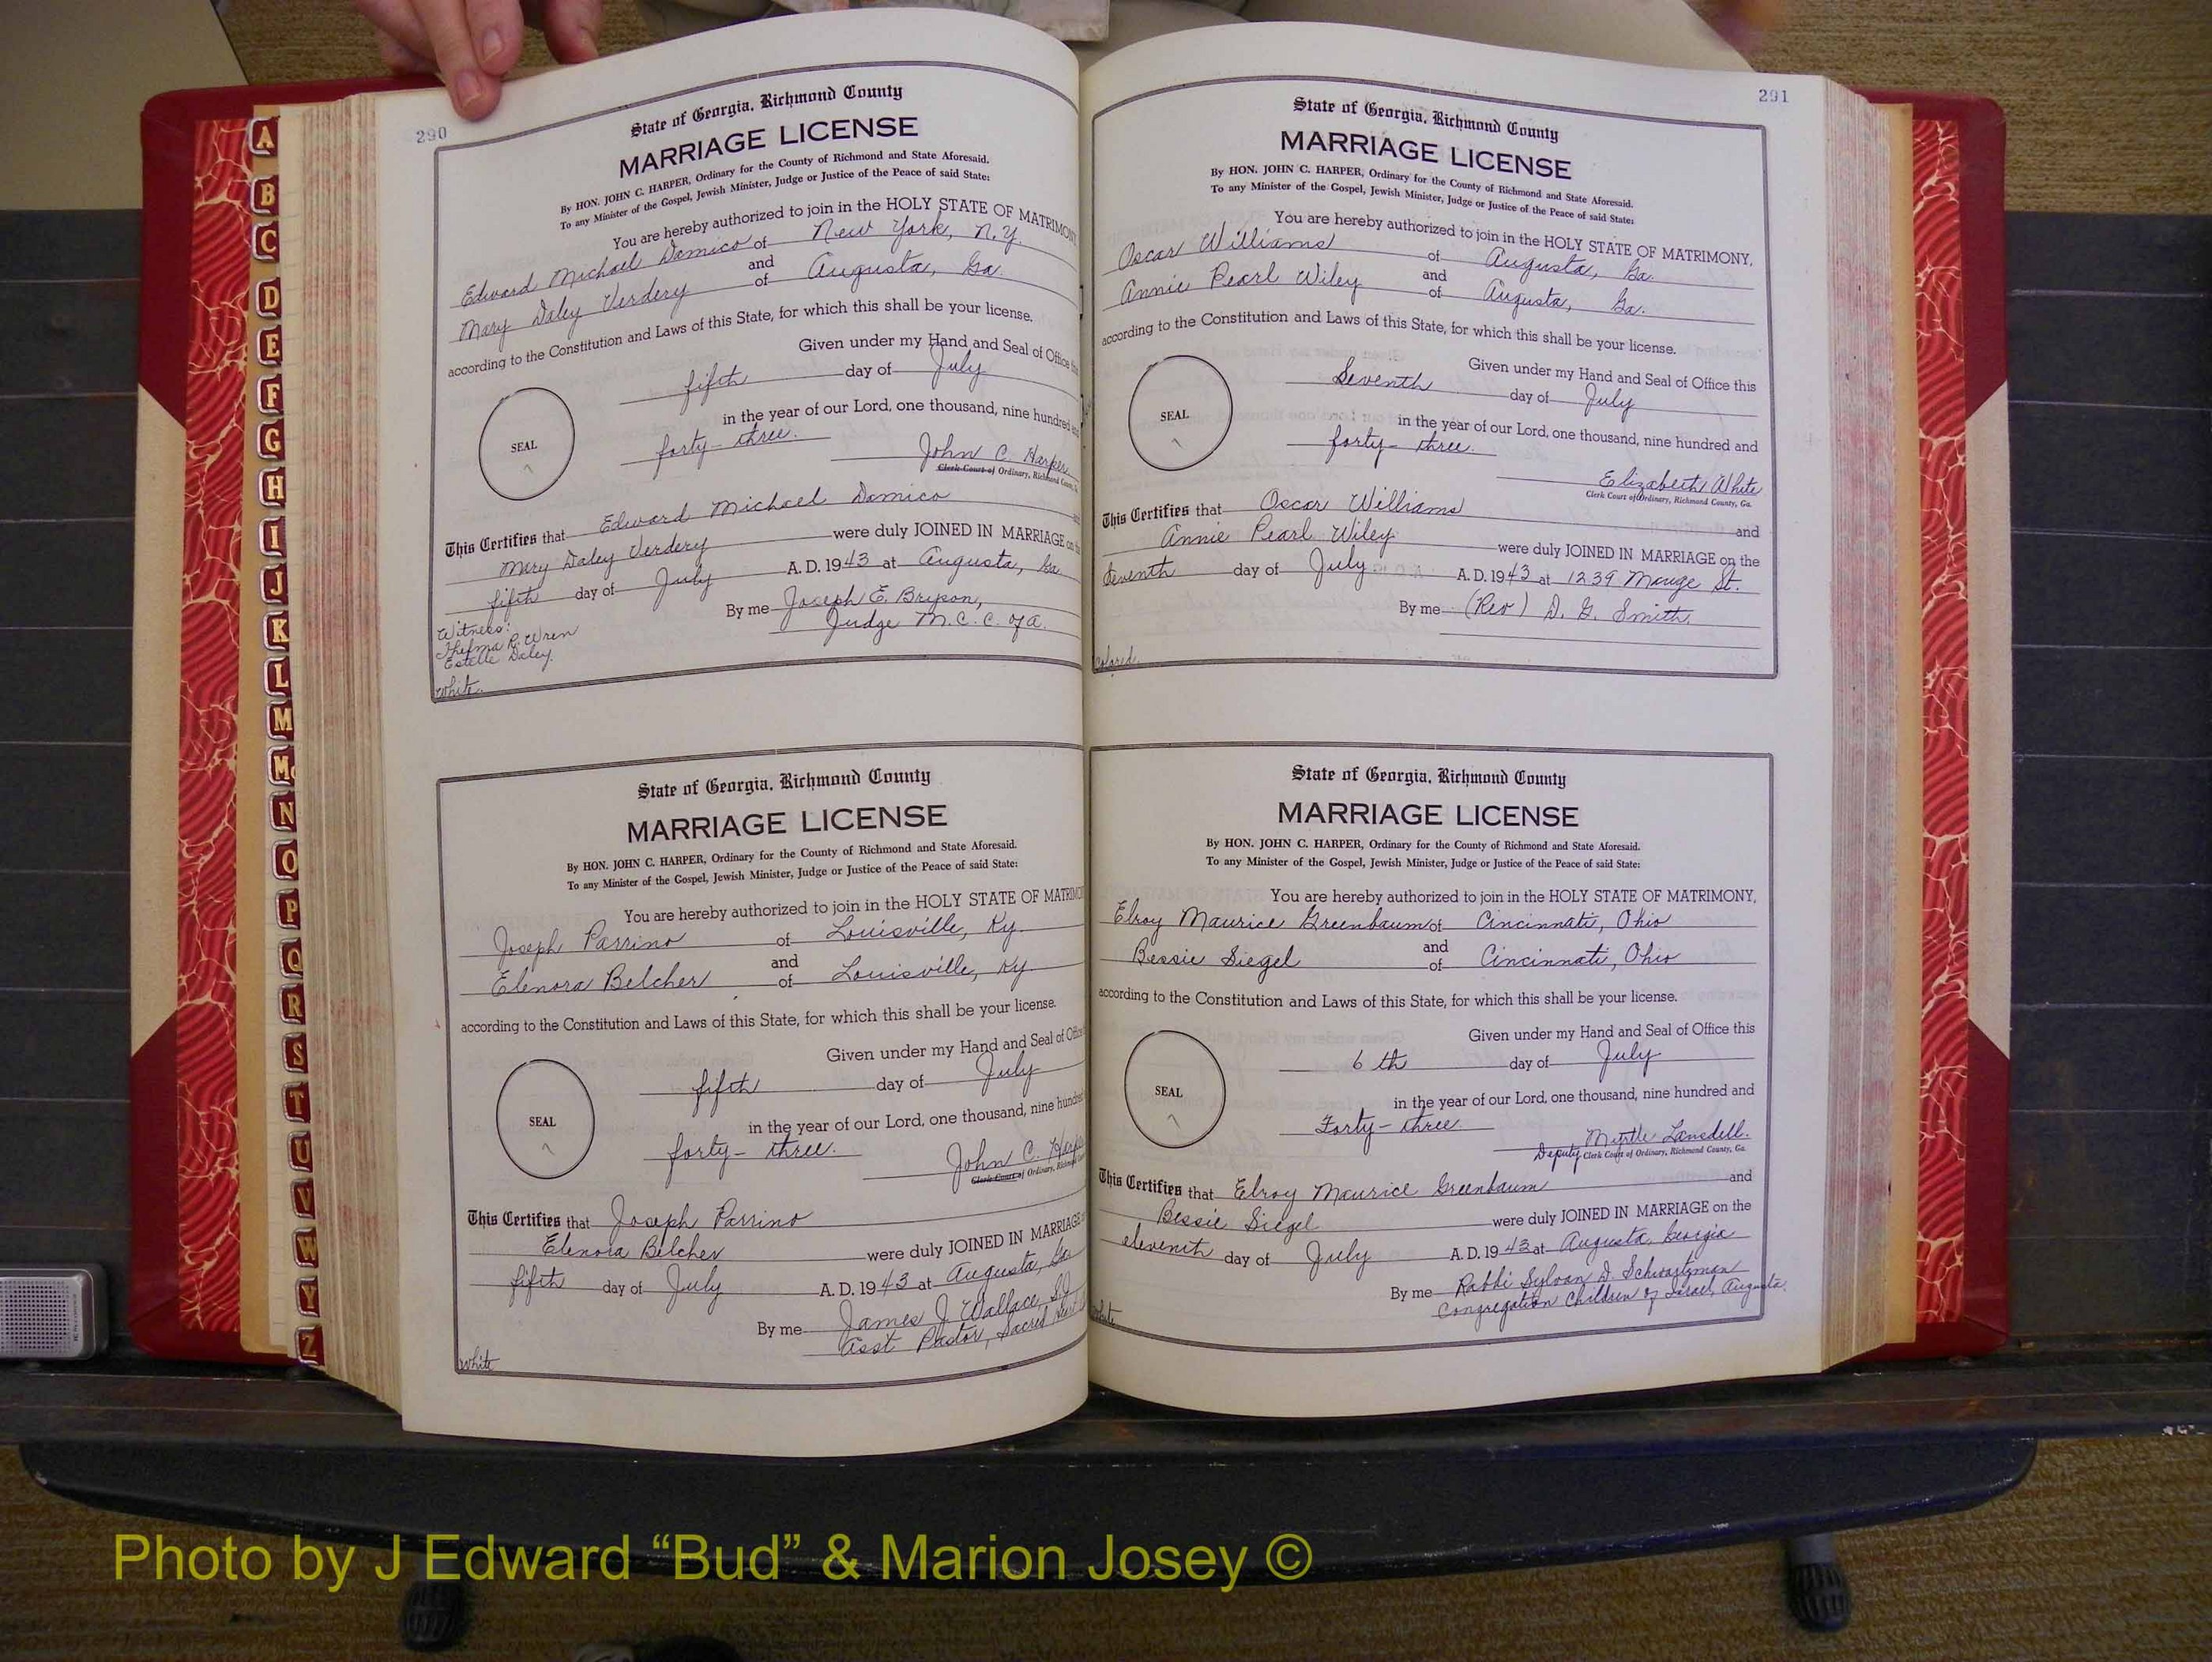 290
State of Georgia, Richmond County
MARRIAGE LICENSE
By HON. JOHN C. HARPER, Ordinary for the County of Richmond and State Aforesaid.
To any Minister of the Gospel, Jewish Minister, Judge or Justice of the Peace of said State:
You are hereby authorized to join in the HOLY STATE OF MATRIMONY
Edward Michael Damico of New York, N.Y.
and
Mary Daley Verdery of Augusta, Ga.
according to the Constitution and Laws of this State, for which this shall be your license.
Given under my Hand and Seal of Office this
fifth day of July
in the year of our Lord, one thousand, nine hundred and
forty-three.
SEAL
John C. Harper
Clerk Court of Ordinary, Richmond County, Ga.
This Certifies that Edward Michael Damico and
Mary Daley Verdery were duly JOINED IN MARRIAGE on the
fifth day of July A. D. 1943 at Augusta, Ga.
By me Joseph E. Bryson,
Judge M.C.C. of A.
Witness:
Thelma R. Wren
Estelle Daley.
white.
State of Georgia, Richmond County
MARRIAGE LICENSE
By HON. JOHN C. HARPER, Ordinary for the County of Richmond and State Aforesaid.
To any Minister of the Gospel, Jewish Minister, Judge or Justice of the Peace of said State:
You are hereby authorized to join in the HOLY STATE OF MATRIMO
Joseph Parrino of Louisville, Ky.
and
Elenora Belcher of Louisville, Ky.
according to the Constitution and Laws of this State, for which this shall be your license.
Given under my Hand and Seal of Office
fifth day of July
in the year of our Lord, one thousand, nine hundred
forty-three.
SEAL
John C. Harpe
Clerk Court of Ordinary, Richmond
This Certifies that Joseph Parrino
Elenora Belcher were duly JOINED IN MARRIAGE
fifth day of July A. D. 1943 at Augusta, Ga.
By me James J. Wallace, S.J.
Asst Pastor, Sacred Heart
white
291
State of Georgia, Richmond County
MARRIAGE LICENSE
By HON. JOHN C. HARPER, Ordinary for the County of Richmond and State Aforesaid.
To any Minister of the Gospel, Jewish Minister, Judge or Justice of the Peace of said State:
You are hereby authorized to join in the HOLY STATE OF MATRIMONY,
Oscar Williams of Augusta, Ga.
and
Annie Pearl Wiley of Augusta, Ga.
according to the Constitution and Laws of this State, for which this shall be your license.
Given under my Hand and Seal of Office this
Seventh day of July
in the year of our Lord, one thousand, nine hundred and
forty-three.
SEAL
Elizabeth White
Clerk Court of Ordinary, Richmond County, Ga.
This Certifies that Oscar Williams and
Annie Pearl Wiley were duly JOINED IN MARRIAGE on the
Seventh day of July A. D. 1943 at 1239 Mauge St.
By me (Rev) D. G. Smith.
colored.
State of Georgia, Richmond County
MARRIAGE LICENSE
By HON. JOHN C. HARPER, Ordinary for the County of Richmond and State Aforesaid.
To any Minister of the Gospel, Jewish Minister, Judge or Justice of the Peace of said State:
You are hereby authorized to join in the HOLY STATE OF MATRIMONY,
Elroy Maurice Greenbaum of Cincinnati, Ohio
and
Bessie Siegel of Cincinnati, Ohio
according to the Constitution and Laws of this State, for which this shall be your license.
Given under my Hand and Seal of Office this
6th day of July
in the year of our Lord, one thousand, nine hundred and
Forty-three
SEAL
Myrtle Lansdell.
Deputy Clerk Court of Ordinary, Richmond County, Ga.
This Certifies that Elroy Maurice Greenbaum and
Bessie Siegel were duly JOINED IN MARRIAGE on the
eleventh day of July A. D. 1943 at Augusta, Georgia
By me Rabbi Sylvan D. Schwartzman
Congregation Children of Israel, Augusta.
white
A
B
C
D
E
F
G
H
I
J
K
L
M
Mc
N
O
P
Q
R
S
T
U
V
W
Y
Z
Photo by J Edward “Bud” & Marion Josey ©